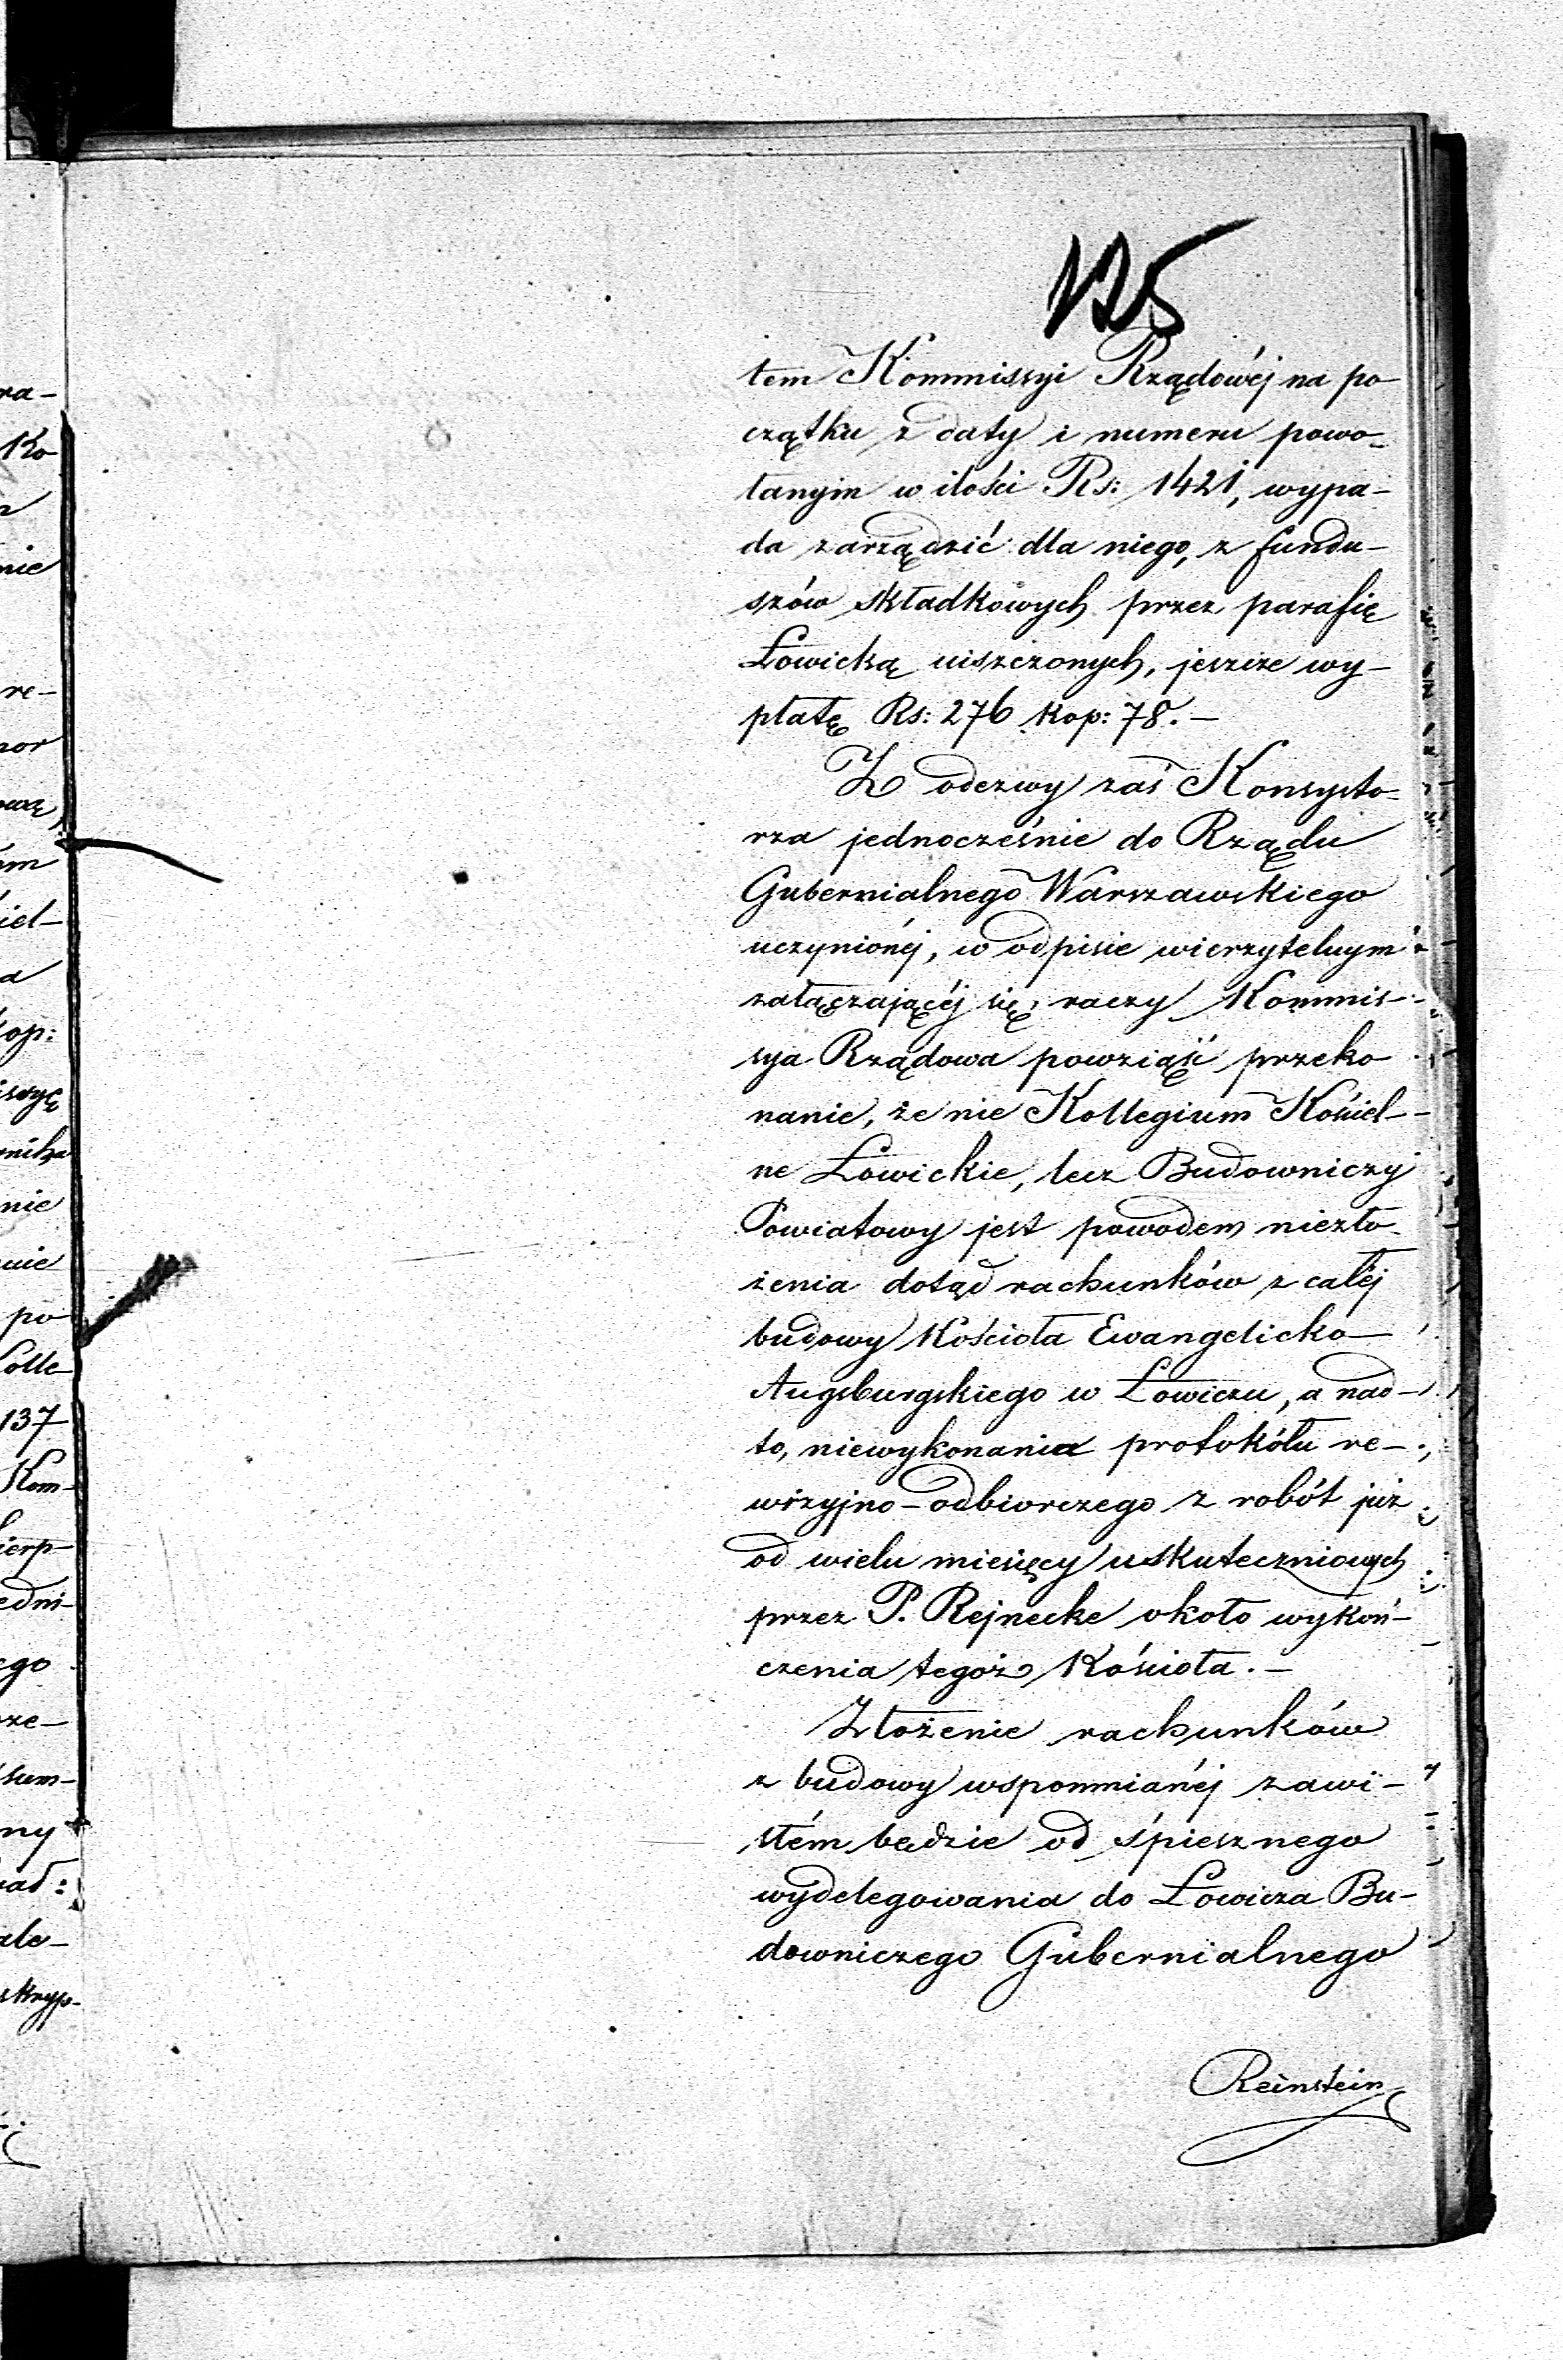 125
tem Kommissyi Rządowéj na po
czątku z daty i numeru powo-
łanym w ilości Rs: 1421, wypa-
da zarządzić dla niego, z fundu-
szów składkowych przez parafię
Łowicką uiszczonych, jeszcze wy-
płatę Rs: 276 kop: 78. —
Z odezwy zaś Konsysto-
rza jednocześnie do Rządu
Gubernialnego Warszawskiego
uczynionéj, w odpisie wierzytelnym
załączającéj się, raczy Kommis-
sya Rządowa powziąść przeko
nanie, że nie Kollegium Kościel-
ne Łowickie, lecz Budowniczy
Powiatowy jest powodem niezło-
żenia dotąd rachunków z całéj
budowy Kościoła Ewangelicko-
Augsburgskiego w Łowiczu, a nad-
to, niewykonania protokółu re-
wizyjno-odbiorczego z robót już
od wielu miesięcy uskutecznionych
przez P. Rejnecke około wykoń-
czenia tegoż Kościoła. —
Złożenie rachunków
z budowy wspomnianéj zawi-
słém będzie od śpiesznego
wydelegowania do Łowicza Bu-
downiczego Gubernialnego
Reinstein
ra-
Ko
nie
re-
nor
ém
iel-
a
kop:
issyę
nika
nie
nie
po
Colle
137
Kom-
ierp-
edni-
ego
rze-
sum-
ny
iad:
ale-
skryp-